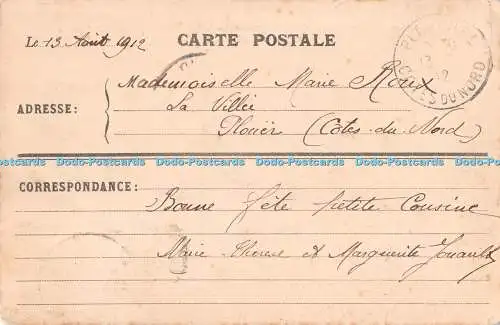 Le 13 Août 1912
CARTE POSTALE
PL
CÔTES DU NORD
ADRESSE:
Mademoiselle Marie Roux
La Villée
Plouër (Côtes-du-Nord)
Dodo-Postcards Dodo-Postcards Dodo-Postcards Dodo-Postcards Dodo-Postcards Dodo-Postcards
CORRESPONDANCE:
Bonne fête petite Cousine
Marie Thérèse et Marguerite Jouault